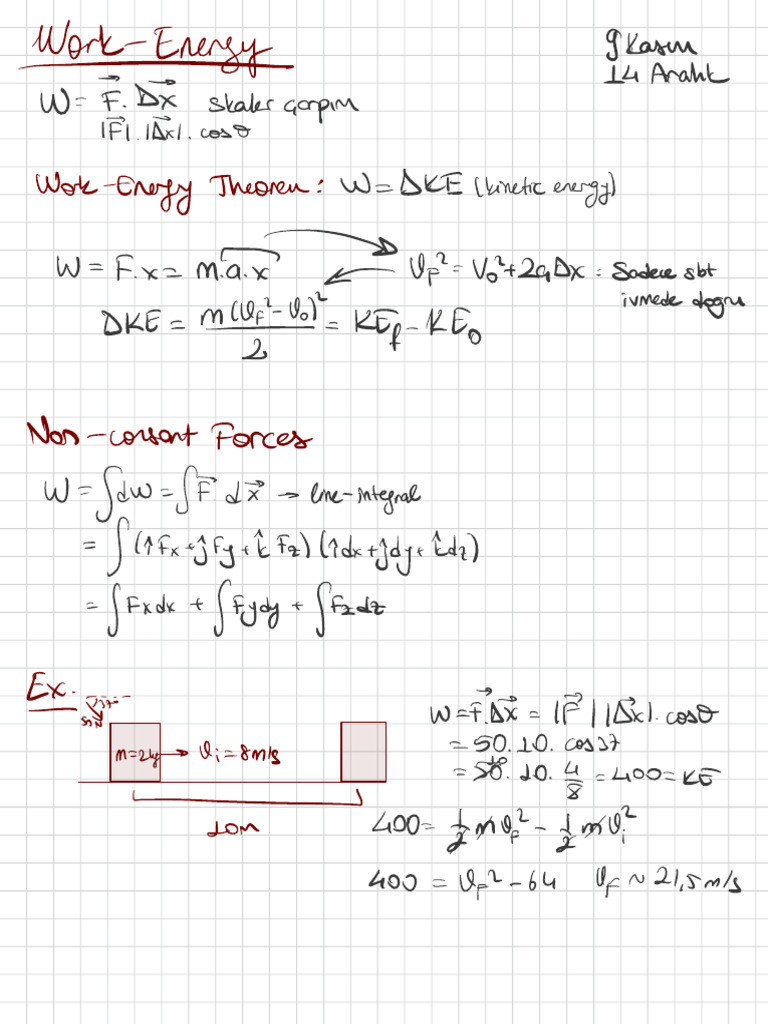 Work-Energy
9 Kasım
14 Aralık
W = F⃗ . Δx⃗ skaler çarpım
|F⃗| . |Δx⃗| . cosθ
Work-Energy Theorem: W = ΔKE (kinetic energy)
W = F.x = m.a.x
V_F² = V_0² + 2aΔx : Sadece sbt
ivmede doğru
ΔKE = m(V_F² - V_0)²/2 = KE_f - KE_0
Non-consant Forces
W = ∫dw = ∫F⃗ dx⃗ → line-integral
= ∫(îFx + ĵFy + k̂Fz)(îdx + ĵdy + k̂dz)
= ∫Fxdx + ∫Fydy + ∫Fzdz
Ex.
37
50N
m=2kg → V_i = 8m/s
10m
W = F⃗.Δx⃗ = |F⃗||Δx⃗|.cosθ
= 50.10.cos37
= 50.10.4/8 = 400 = KE
400 = 1/2 mV_F² - 1/2 mV_i²
400 = V_F² - 64 V_F ~ 21,5m/s